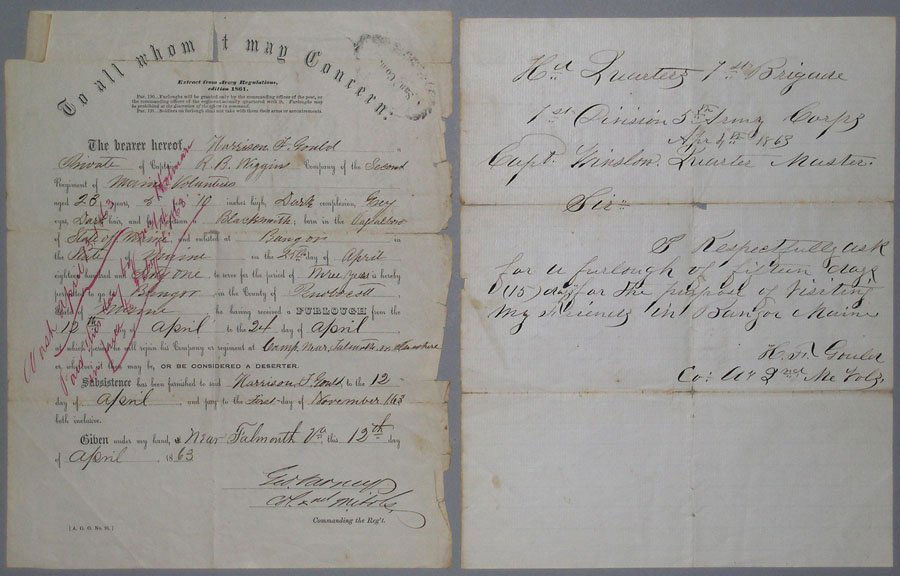 To all whom it may Concern:
Extract from Army Regulations,
edition 1861.
Par. 190. Furloughs will be granted only by the commanding officer of the post, or
the commanding officer of the regiment actually quartered with it. Furloughs may
be prohibited at the discretion of the officer in command.
Par. 191. Soldiers on furlough shall not take with them their arms or accoutrements.
The bearer hereof, Harrison F. Gould a
Private of Captain K. B. Wiggins Company of the Second
Regiment of Maine Volunteers
aged 23 years, 5 10 inches high, Dark complexion, Grey
eyes, Dark hair, and by occupation a Blacksmith; born in the
of State of Maine, and enlisted at Bangor in
the State Maine on the 25th day of April
eighteen hundred and Sixty one to serve for the period of Three Years is hereby
permitted to go to Bangor in the County of Penobscott
State of Maine he having received a FURLOUGH from the
12th day of April to the 24 day of April,
at which period he will rejoin his Company or regiment at Camp Near Falmouth or elsewhere
or wherever it then may be, OR BE CONSIDERED A DESERTER.
Subsistence has been furnished to said Harrison F. Gould to the 12
day of April, and pay to the First day of November 1863
both inclusive.
Given under my hand, at Near Falmouth Va. this 12th day
of April, 1863
Geo. Varney
Col. 2nd
Commanding the Reg't.
[A. G. O. No. 31.]
Hd Quarters 1st Brigade
1st Division 5th Army Corps
Apr 4th 1863
Capt. Winslow. Quarter Master.
Sir
I Respectfully ask
for a furlough of fifteen days
(15) days for the purpose of Visiting
My Friends in Bangor Maine
H. F. Gould
Co. 2nd Me Vols